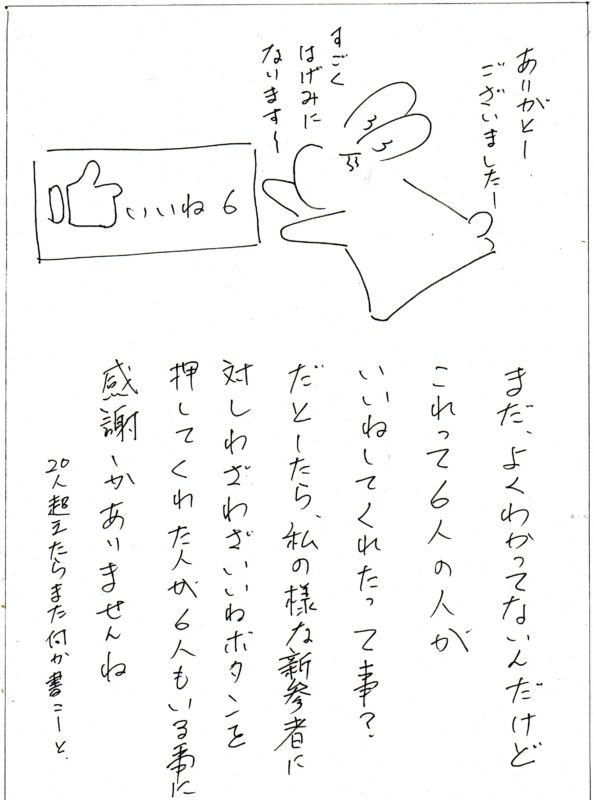 ありがとー
ございましたー
すごく
はげみに
なります〜
いいね 6
まだ、よくわかってないんだけど
これって6人の人が
いいねしてくれたって事?
だとーたら、私の様な新参者に
対しわざわざいいねボタンを
押してくれた人が6人もいる事に
感謝しかありませんね
20人超えたらまた何か書こーと、